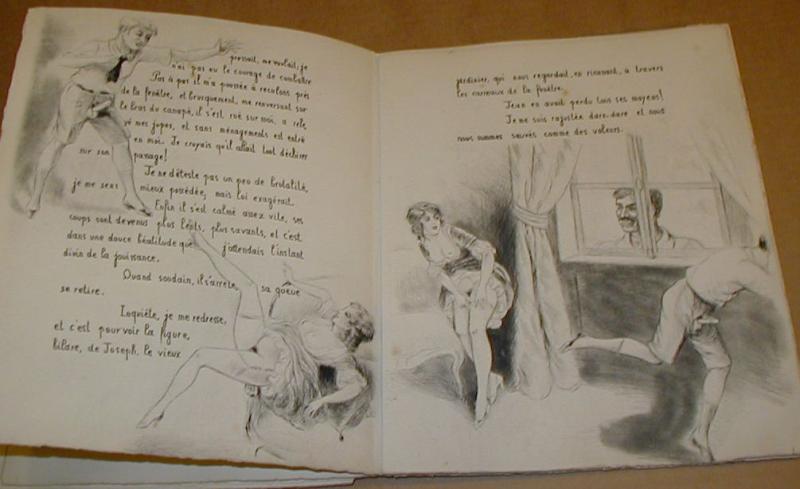 pressait, me voulait; je
n'ai pas eu le courage de combattre
Pas à pas il m'a poussée à reculons près
de la fenêtre, et brusquement, me renversant sur
le bras du canapé, il s'est rué sur moi, a rele
vé mes jupes, et sans ménagements est entré
en moi. Je croyais qu'il allait tout déchirer
sur son passage!
Je ne déteste pas un peu de brutalité,
je me sens mieux possédée, mais lui exagérait.
Enfin il s'est calmé assez vite, ses
coups sont devenus plus lents, plus savants, et c'est
dans une douce béatitude que j'attendais l'instant
divin de la jouissance.
Quand soudain, il s'arrête, sa queue
se retire.
Inquiète, je me redresse,
et c'est pour voir la figure,
hilare, de Joseph, le vieux
jardinier, qui nous regardait, en ricanant, à travers
les carreaux de la fenêtre.
Jean en avait perdu tous ses moyens!
Je me suis rajustée dare-dare et nous
nous sommes sauvés comme des voleurs.